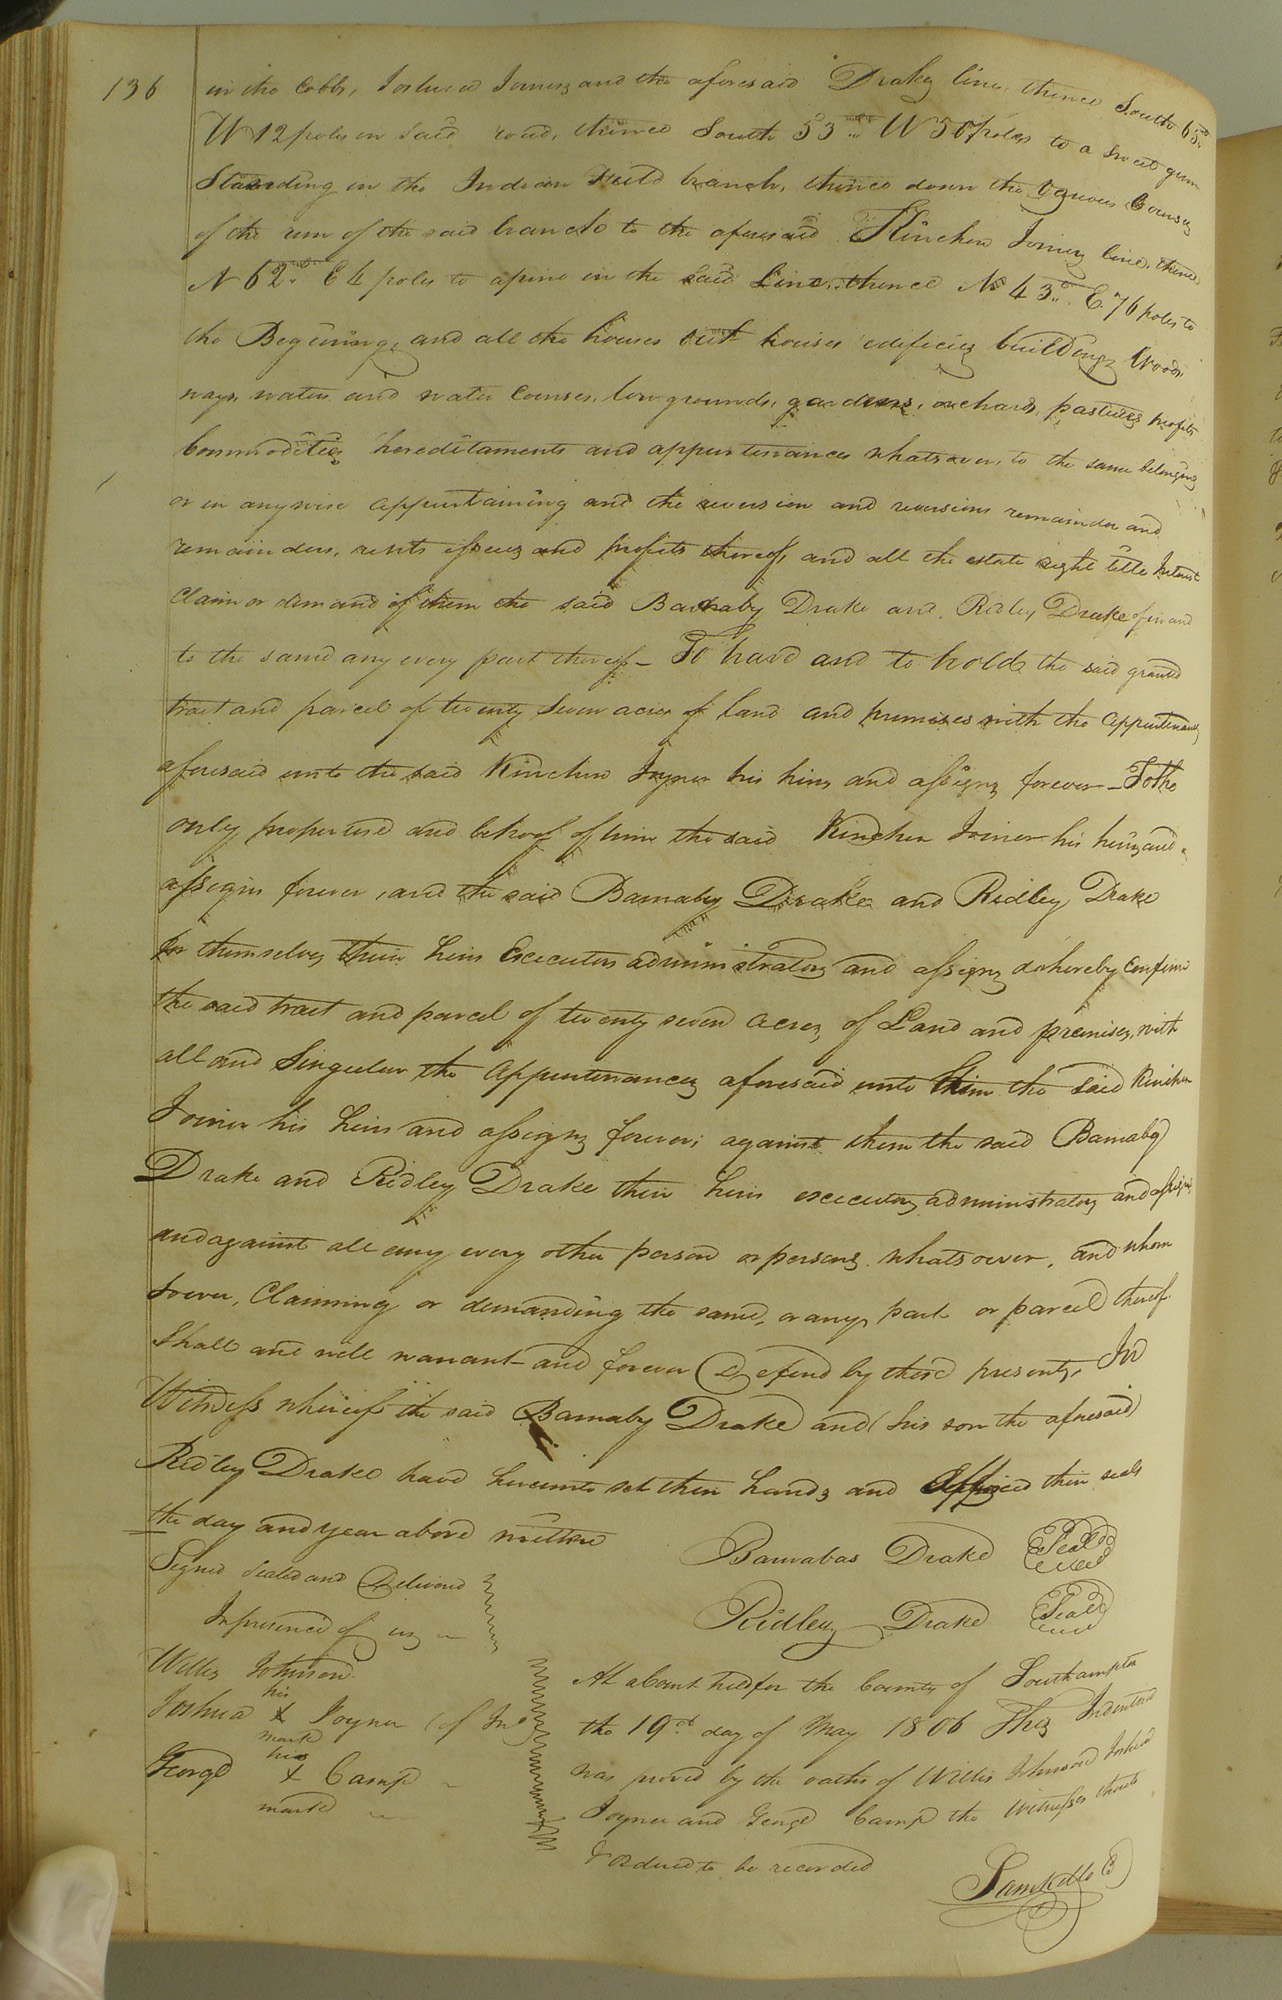 136
in the Cobbs, Joshua Joiners and the aforesaid Drakes line, thence South 65d
W 12 poles on said road, thence South 53d W 50 poles to a Sweet gum
Standing in the Indian Field branch, thence down the various Courses
of the run of the said branch to the aforesaid Kinchen Joiners line, thence
N 62d E 4 poles to a pine in the said line, thence No 43d E. 76 poles to
the Begining, and all the houses out houses edifices buildings woods
ways, waters and water Courses, low grounds, gardens, orchards, pastures profits
Commodities hereditaments and appurtenances whatsoever, to the same belonging
or in anywise appurtaining and the reversion and reversions remainder and
remainders, rents issues and profits thereof, and all the estate right title Interest
Claim or demand of them the said Barnaby Drake and Ridley Drake of in and
to the same any every part thereof - To have and to hold the said granted
tract and parcel of twenty seven acres of land and premises with the appurtenances
aforesaid unto the said Kinchen Joyner his heirs and assigns forever - To the
only proper use and behoof of him the said Kinchen Joiner his heirs and
assigns forever, and the said Barnaby Drake and Ridley Drake
for themselves their heirs Executors administrators and assigns do hereby confirm
the said tract and parcel of twenty seven acres of Land and premises, with
all and Singular the appurtenances aforesaid unto him the said Kinchen
Joiner his heirs and assigns forever; against them the said Barnaby
Drake and Ridley Drake their heirs executors administrators and assigns
and against all any every other person or persons whatsoever, and whom
soever, Claiming or demanding the same, or any part or parcel thereof.
Shall and will warrant and forever Defend by these presents, In
Witness whereof the said Barnaby Drake and (his son the aforesaid)
Ridley Drake have hereunto set their hands and Affixed their seals
the day and year above written
Barnabas Drake Seal
Signed Sealed and Delivered
Ridley Drake Seal
In presence of us
Willis Johnson
his
Joshua X Joyner (of Jno)
mark
his
George X Camp
mark
At a Court held for the County of Southampton
the 19th day of May 1806 This Indenture
was proved by the oaths of Willis Johnson Joshua
Joyner and George Camp the Witnesses thereto
& ordered to be recorded
Saml Kello